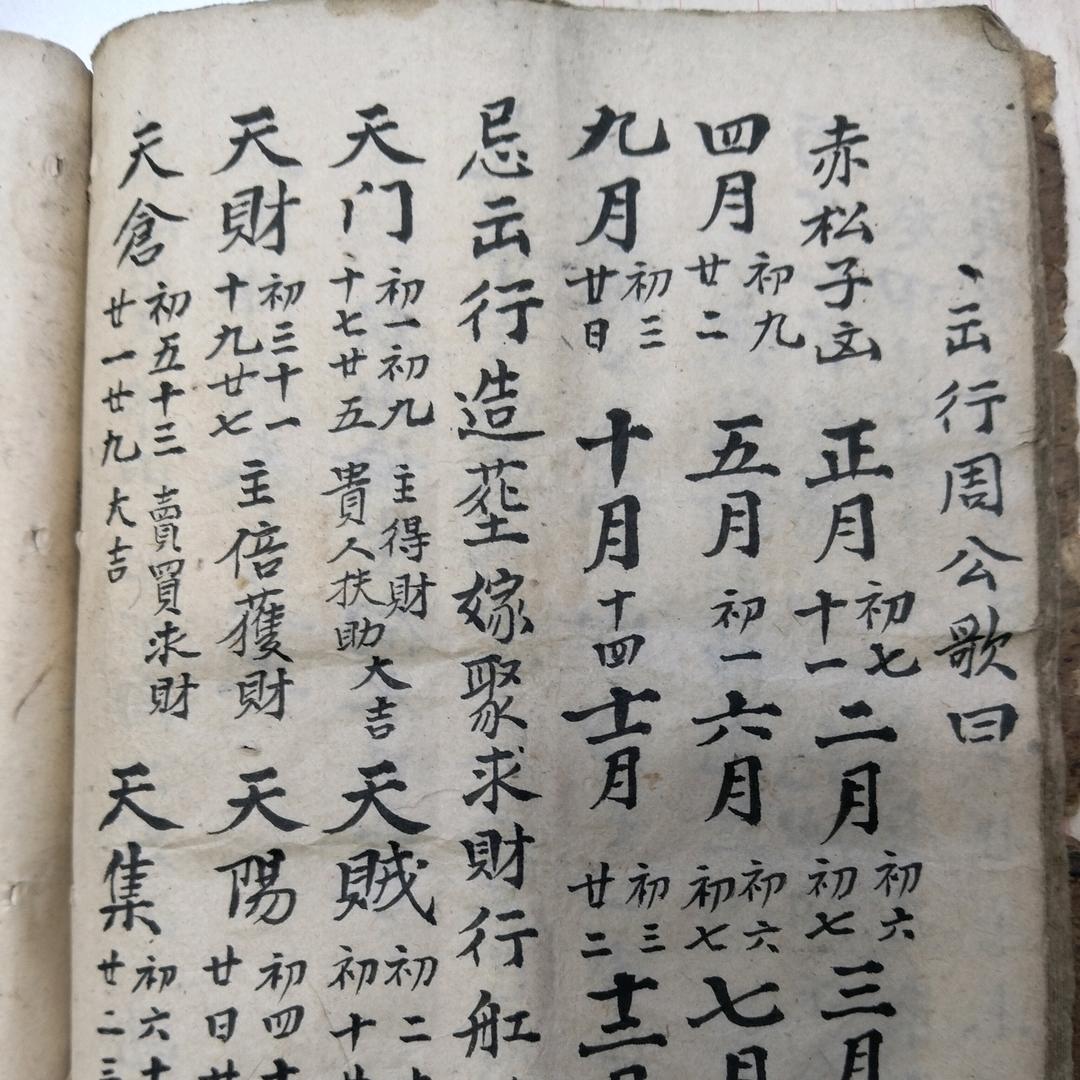 、出行周公歌曰
赤松子曰 正月初七十一 二月初六初七 三月
四月初九廿二 五月初一 六月初六初七 七月
九月初三廿日 十月十四 十一月初三廿二 十二月
忌出行造葬嫁聚求財行船
天门初一初九十七廿五 主得財貴人扶助大吉 天賊初二初十
天財初三十一十九廿七 主倍獲財 天陽初四廿日
天倉初五十三廿一廿九 賣買求財大吉 天集初六廿二